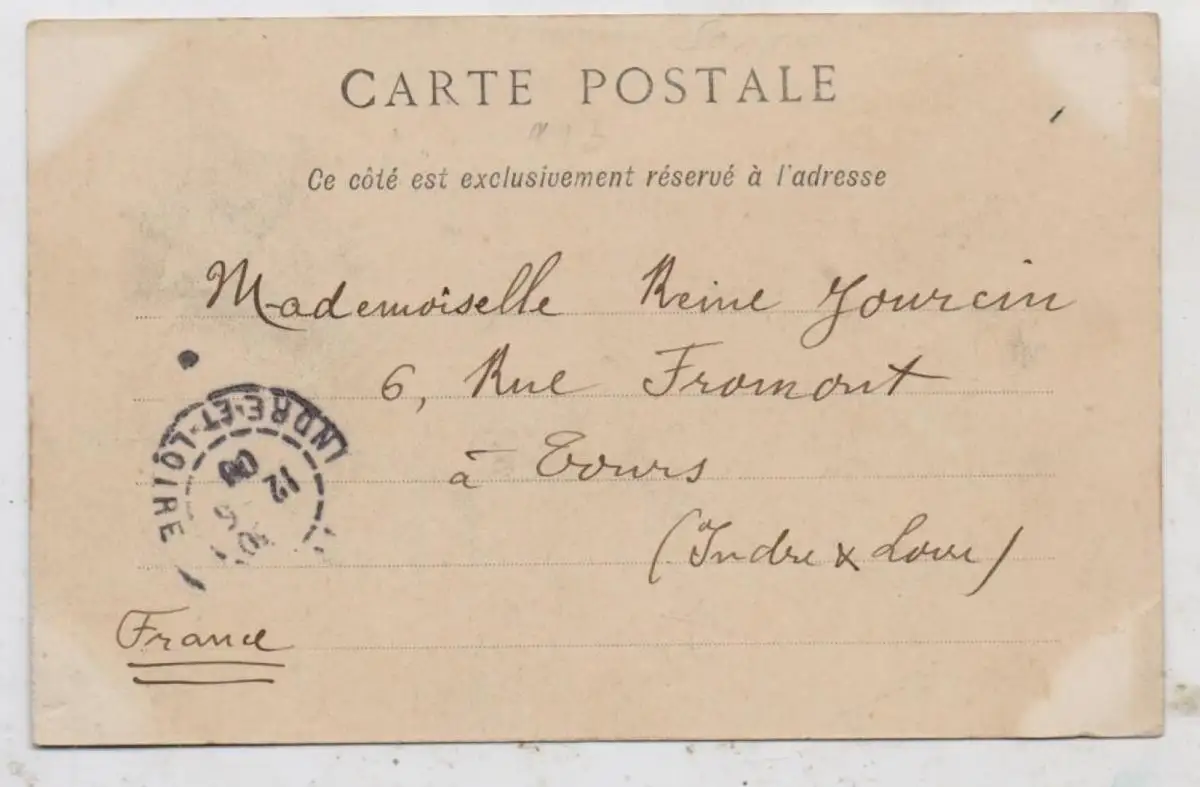 CARTE POSTALE
Ce côté est exclusivement réservé à l'adresse
Mademoiselle Reine Jourcin
6, Rue Fromont
à Tours
(Indre & Loire)
France
INDRE-ET-LOIRE
12